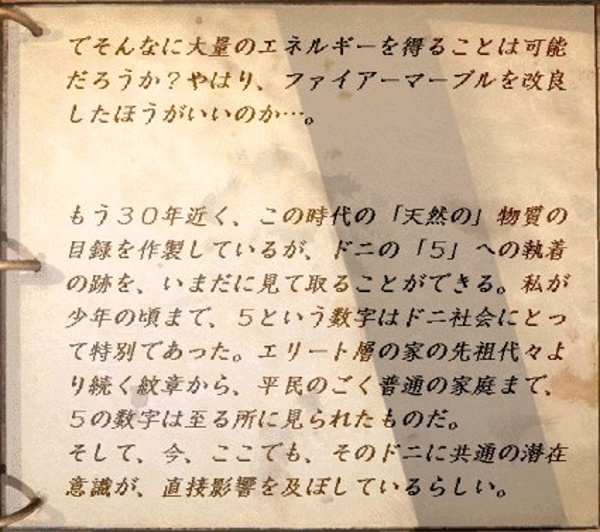 でそんなに大量のエネルギーを得ることは可能
だろうか？やはり、ファイアーマーブルを改良
したほうがいいのか…。
もう３０年近く、この時代の「天然の」物質の
目録を作製しているが、ドニの「５」への執着
の跡を、いまだに見て取ることができる。私が
少年の頃まで、５という数字はドニ社会にとっ
て特別であった。エリート層の家の先祖代々よ
り続く紋章から、平民のごく普通の家庭まで、
５の数字は至る所に見られたものだ。
そして、今、ここでも、そのドニに共通の潜在
意識が、直接影響を及ぼしているらしい。